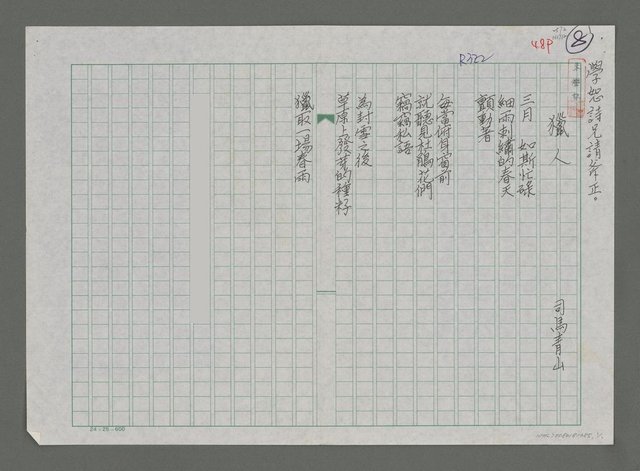 學恕詩兄請斧正。
獵人
司馬青山
三月 如斯忙碌
細雨刺繡的春天
顫動著
每當俯耳窗前
就聽見杜鵑花們
竊竊私語
為封雪之後
草原上發芽的種籽
獵取一場春雨
48P
8
R322
24-25-600